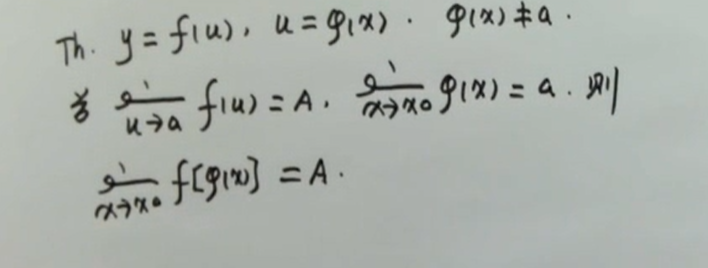 Th. y = f(u), u = φ(x). φ(x) ≠ a.
若 lim u→a f(u) = A. lim x→x₀ φ(x) = a. 则
lim x→x₀ f[φ(x)] = A.